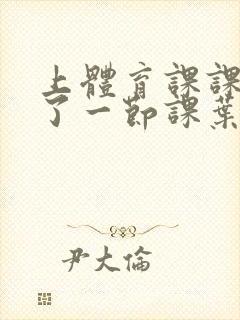 上體育課課
了一節課葉
尹大倫